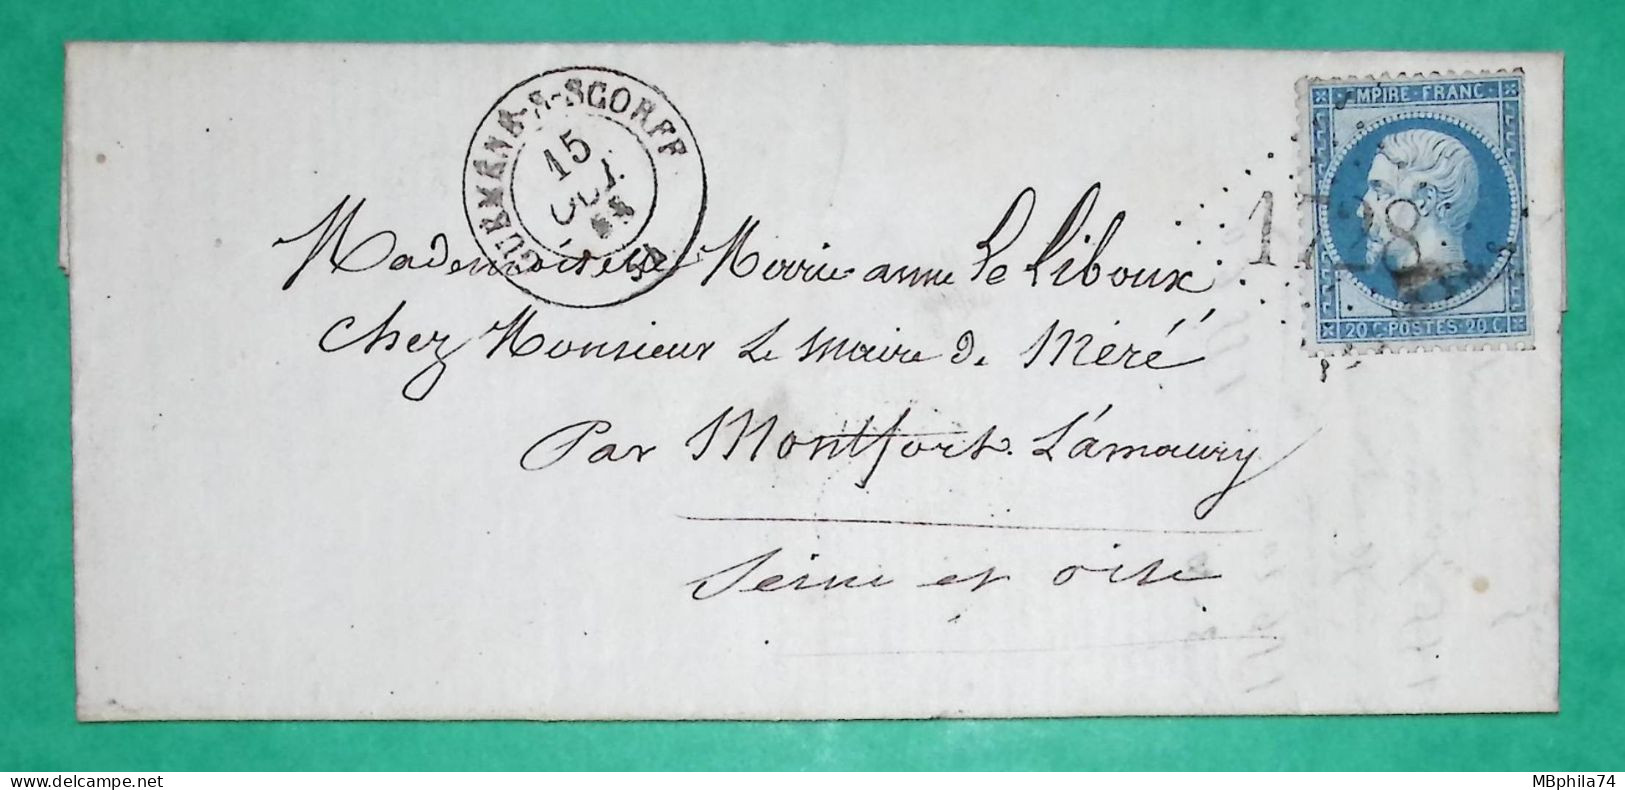 GOURMENE-S-SCORFF
15
54
EMPIRE-FRANC.
1728
20 C-POSTES-20 C
Mademoiselle Marie anne Le Liboux
chez Monsieur Le Maire de Méré
Par Montfort L'amaury
Seine et oise
www.delcampe.net
MBphila74